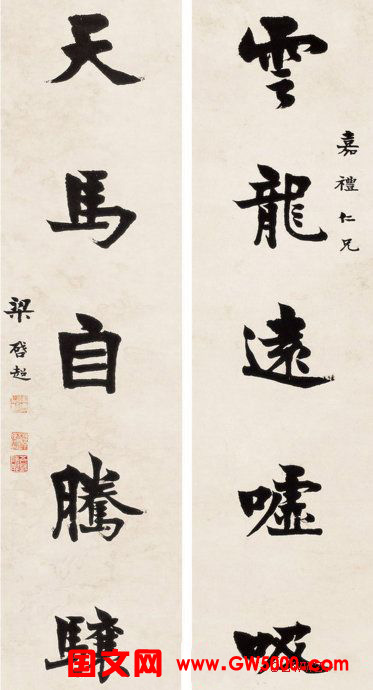 雲龍遠噓吸
嘉禮仁兄
天馬自騰驤
梁啓超
国文网 www.GW5000.com